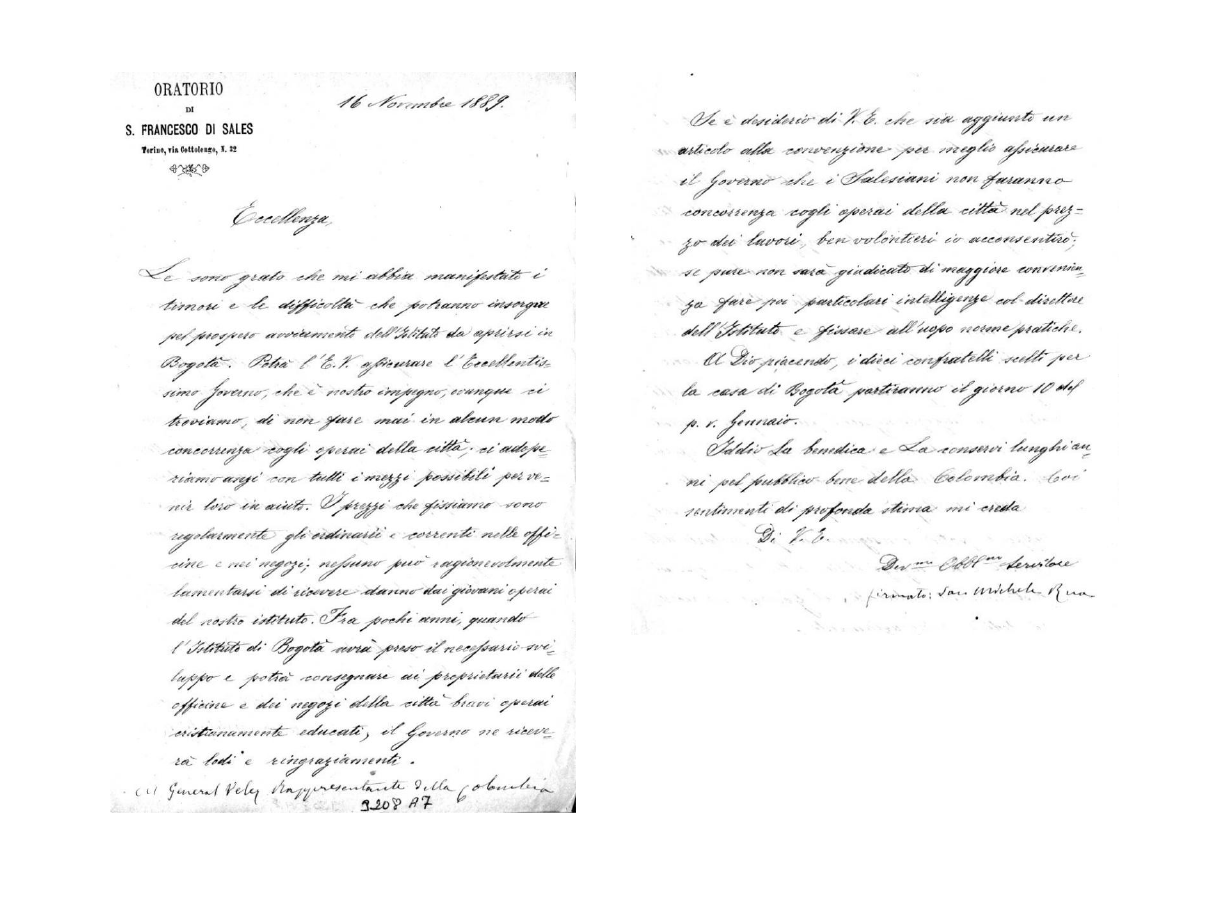 ORATORIO
DI
S. FRANCESCO DI SALES
Torino, via Cottolengo, N. 32
16 Novembre 1889.
Eccellenza,
Le sono grato che mi abbia manifestato i
timori e le difficoltà che potranno insorgere
pel prospero avviamento dell'Istituto da aprirsi in
Bogotà. Potrà l'E.V. assicurare l'Eccellentis-
simo Governo, che è nostro impegno, ovunque ci
troviamo, di non fare mai in alcun modo
concorrenza cogli operai della città; ci adope-
riamo anzi con tutti i mezzi possibili per ve-
nir loro in aiuto. I prezzi che fissiamo sono
regolarmente gli ordinarii e correnti nelle offi-
cine e nei negozi; nessuno può ragionevolmente
lamentarsi di ricevere danno dai giovani operai
del nostro istituto. Fra pochi anni, quando
l'Istituto di Bogotà avrà preso il necessario svi-
luppo e potrà consegnare ai proprietarii delle
officine e dei negozi della città bravi operai
cristianamente educati, il Governo ne riceve-
rà lodi e ringraziamenti.
Al General Velez Rappresentante della Colombia
3208 A7
Se è desiderio di V. E. che sia aggiunto un
articolo alla convenzione per meglio assicurare
il Governo che i Salesiani non faranno
concorrenza cogli operai della città nel prez=
zo dei lavori, ben volontieri io acconsentirò;
se pure non sarà giudicato di maggiore convenien=
za fare poi particolari intelligenze col direttore
dell'Istituto e fissare all'uopo norme pratiche.
A Dio piacendo, i dieci confratelli scelti per
la casa di Bogotà partiranno il giorno 10 del
p. v. Gennaio.
Iddio La benedica e La conservi lunghi an-
ni pel pubblico bene della Colombia. Coi
sentimenti di profonda stima mi creda
Di V. E.
Dev.mo Obbl.mo Servitore
firmato: Sac. Michele Rua